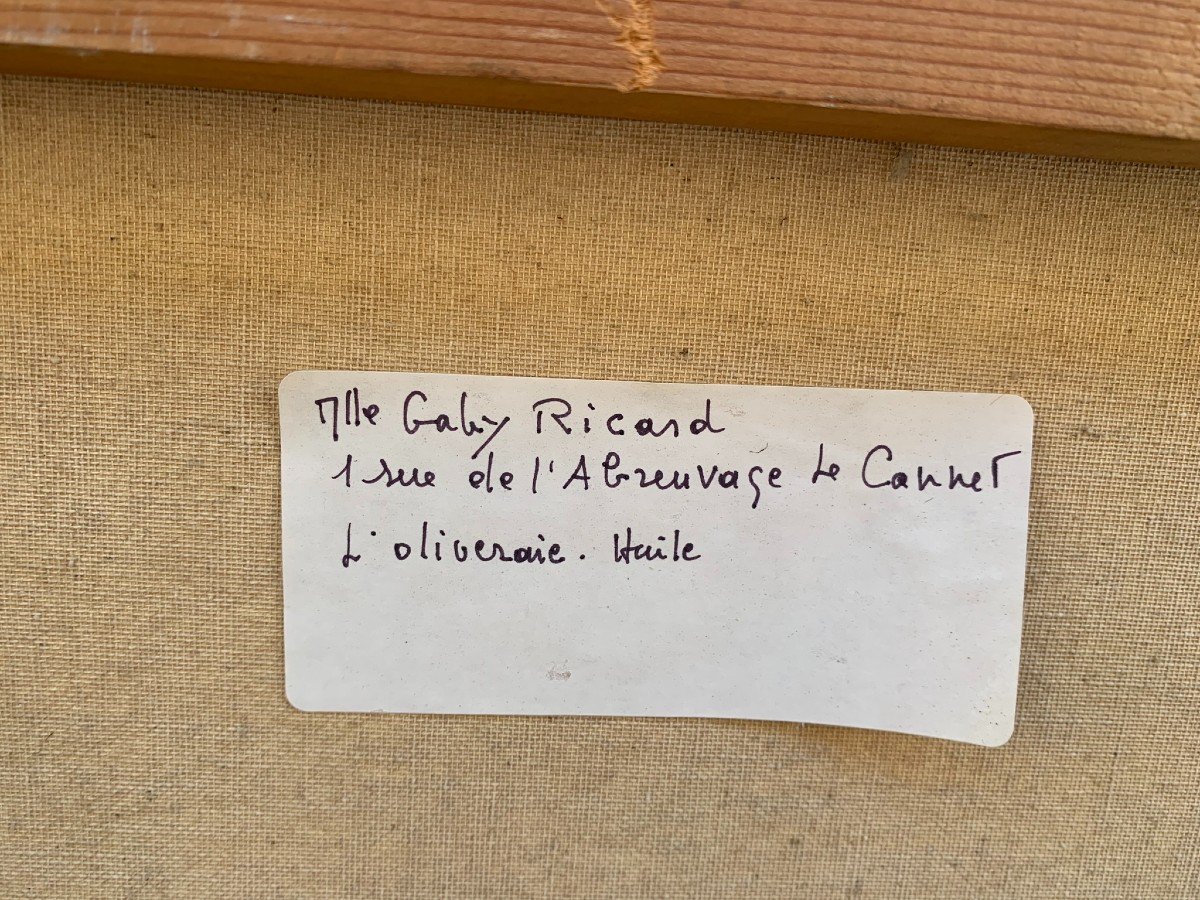 Mlle Gaby Ricard
1 rue de l'Abreuvage Le Cannet
L'oliveraie. Huile